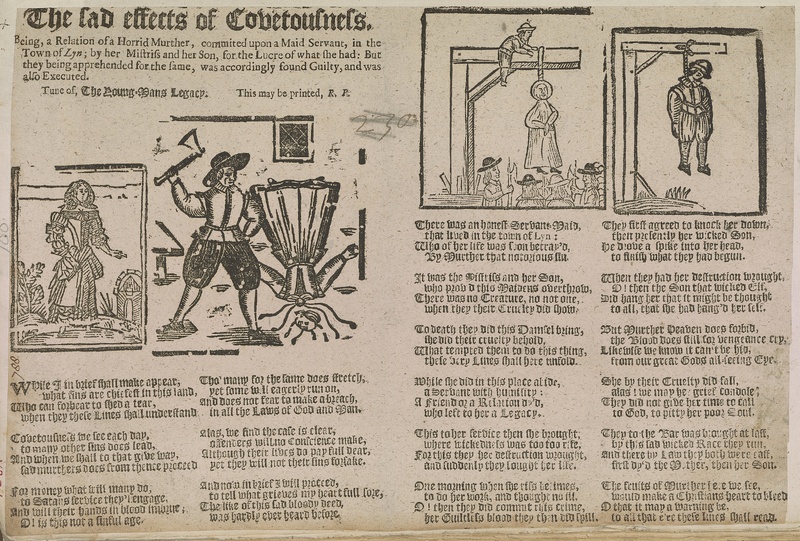 The sad effects of Covetousness.
Being, a Relation of a Horrid Murther, commited upon a Maid Servant, in the
Town of Lyn; by her Mistriss and her Son, for the Lucre of what she had: But
they being apprehended for the same, was accordingly found Guilty, and was
also Executed.
Tune of, The Young-Mans Legacy. This may be printed, R. P.
While I in brief shall make appear,
what sins are chiefest in this land,
Who can forbear to shed a tear,
when they these Lines shall understand
Covetousness we see each day,
to many other sins does lead,
And when we shall to that give way,
sad murthers does from thence proceed
For money what will many do,
to Satans service they'l engage,
And will their hands in blood imbrue;
O! is this not a sinful age.
Tho' many for the same does stretch,
yet some will eagerly run on,
and does not fear to make a breach,
in all the Laws of God and Man.
Alas, we find the case is clear,
offenders will no Conscience make,
Although their lives do pay full dear,
yet they will not their sins forsake.
And now in brief I will proceed,
to tell what grieves my heart full sore,
The like of this sad bloody deed,
was hardly ever heard before.
There was an honest Servant-Maid,
that lived in the town of Lyn;
Who of her life was soon betray'd,
By Murther that notorious sin.
It was the Mistriss and her Son,
who prov'd this Maidens overthrow,
There was no Creature, no not one,
when they their Cruelty did show.
To death they did this Damsel bring,
she did their cruelty behold,
What tempted them to do this thing,
these very Lines shall here unfold.
While she did in this place abide,
a Servant with humility;
A Friend or a Relation dy'd,
who left to her a Legacy.
This to her service then she brought;
where wickedness was too too rife,
For this they her destruction wrought,
and suddenly they sought her life.
One morning when she rise betimes,
to do her work, and thought no ill,
O! then they did commit this crime,
her Guiltless blood they then did spill.
They first agreed to knock her down,
then presently her wicked Son,
He drove a spike into her head,
to finish what they had begun.
When they had her destruction wrought,
O! then the Son that wicked Elf,
Did hang her that it might be thought
to all, that she had hang'd her self.
But Murther Heaven does forbid,
the Blood does still for vengeance cry,
Likewise we know it can't be hid,
from our great Gods all-seeing Eye.
She by their Cruelty did fall,
alas! we may her grief condole,
They did not give her time to call
to God, to pitty her poor Soul.
They to the Bar was brought at last,
by this sad wicked Race they run,
And there by Law they both were cast,
first dy'd the Mother, then her Son.
The fruits of Murther here we see,
would make a Christians heart to bleed
O that it may a warning be,
to all that e're these lines shall read.